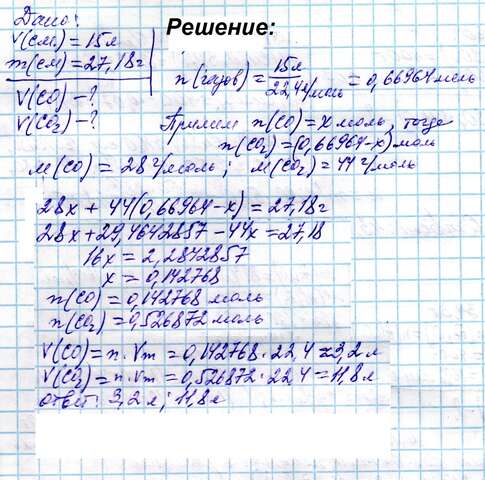 Дано:
Решение:
V(см.) = 15л
m(см) = 27,18г
n(газов) = 15л / 22,4 л/моль = 0,66964 моль
V(CO) - ?
V(CO₂) - ?
Примем n(CO) = x моль, тогда
n(CO₂) = (0,66964-x) моль
M(CO) = 28 г/моль; M(CO₂) = 44 г/моль
28x + 44(0,66964-x) = 27,18г
28x + 29,4642857 - 44x = 27,18
16x = 2,2842857
x = 0,142768
n(CO) = 0,142768 моль
n(CO₂) = 0,526872 моль
V(CO) = n·Vm = 0,142768·22,4 = 3,2 л
V(CO₂) = n·Vm = 0,526872·22,4 = 11,8л
ответ: 3,2 л; 11,8л